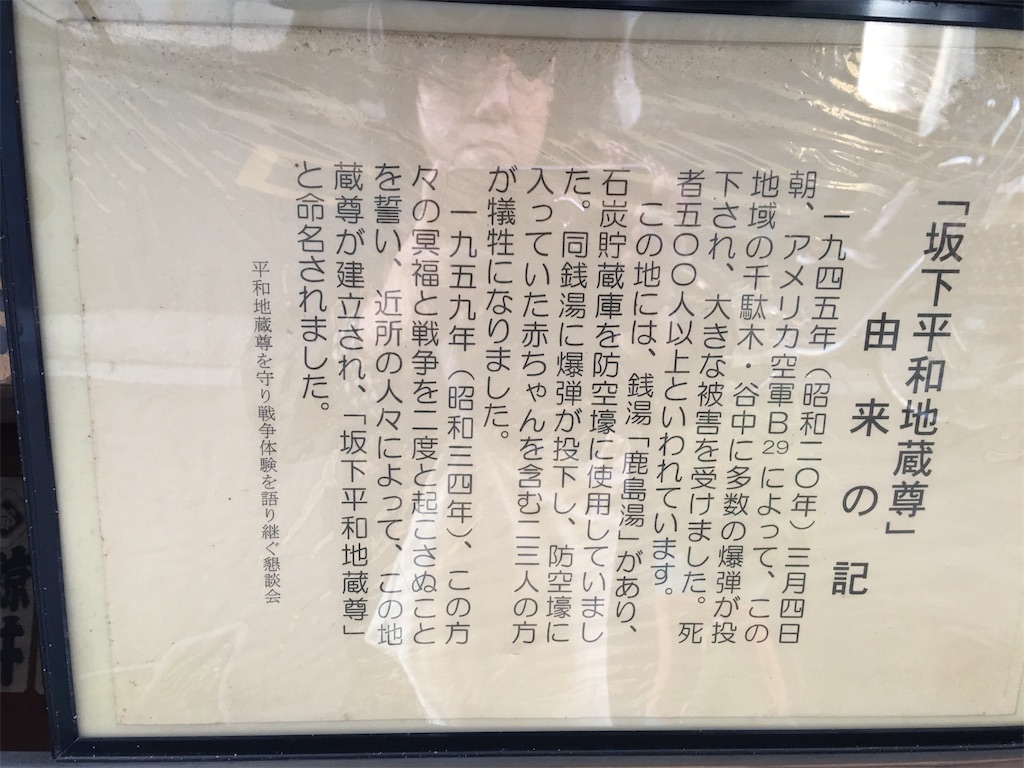 「坂下平和地蔵尊」
由来の記
一九四五年（昭和二〇年）三月四日
朝、アメリカ空軍Ｂ29によって、この
地域の千駄木・谷中に多数の爆弾が投
下され、大きな被害を受けました。死
者五〇〇人以上といわれています。
この地には、銭湯「鹿島湯」があり、
石炭貯蔵庫を防空壕に使用していまし
た。同銭湯に爆弾が投下し、防空壕に
入っていた赤ちゃんを含む二三人の方
が犠牲になりました。
一九五九年（昭和三四年）、この方
々の冥福と戦争を二度と起こさぬこと
を誓い、近所の人々によって、この地
蔵尊が建立され、「坂下平和地蔵尊」
と命名されました。
平和地蔵尊を守り戦争体験を語り継ぐ懇談会